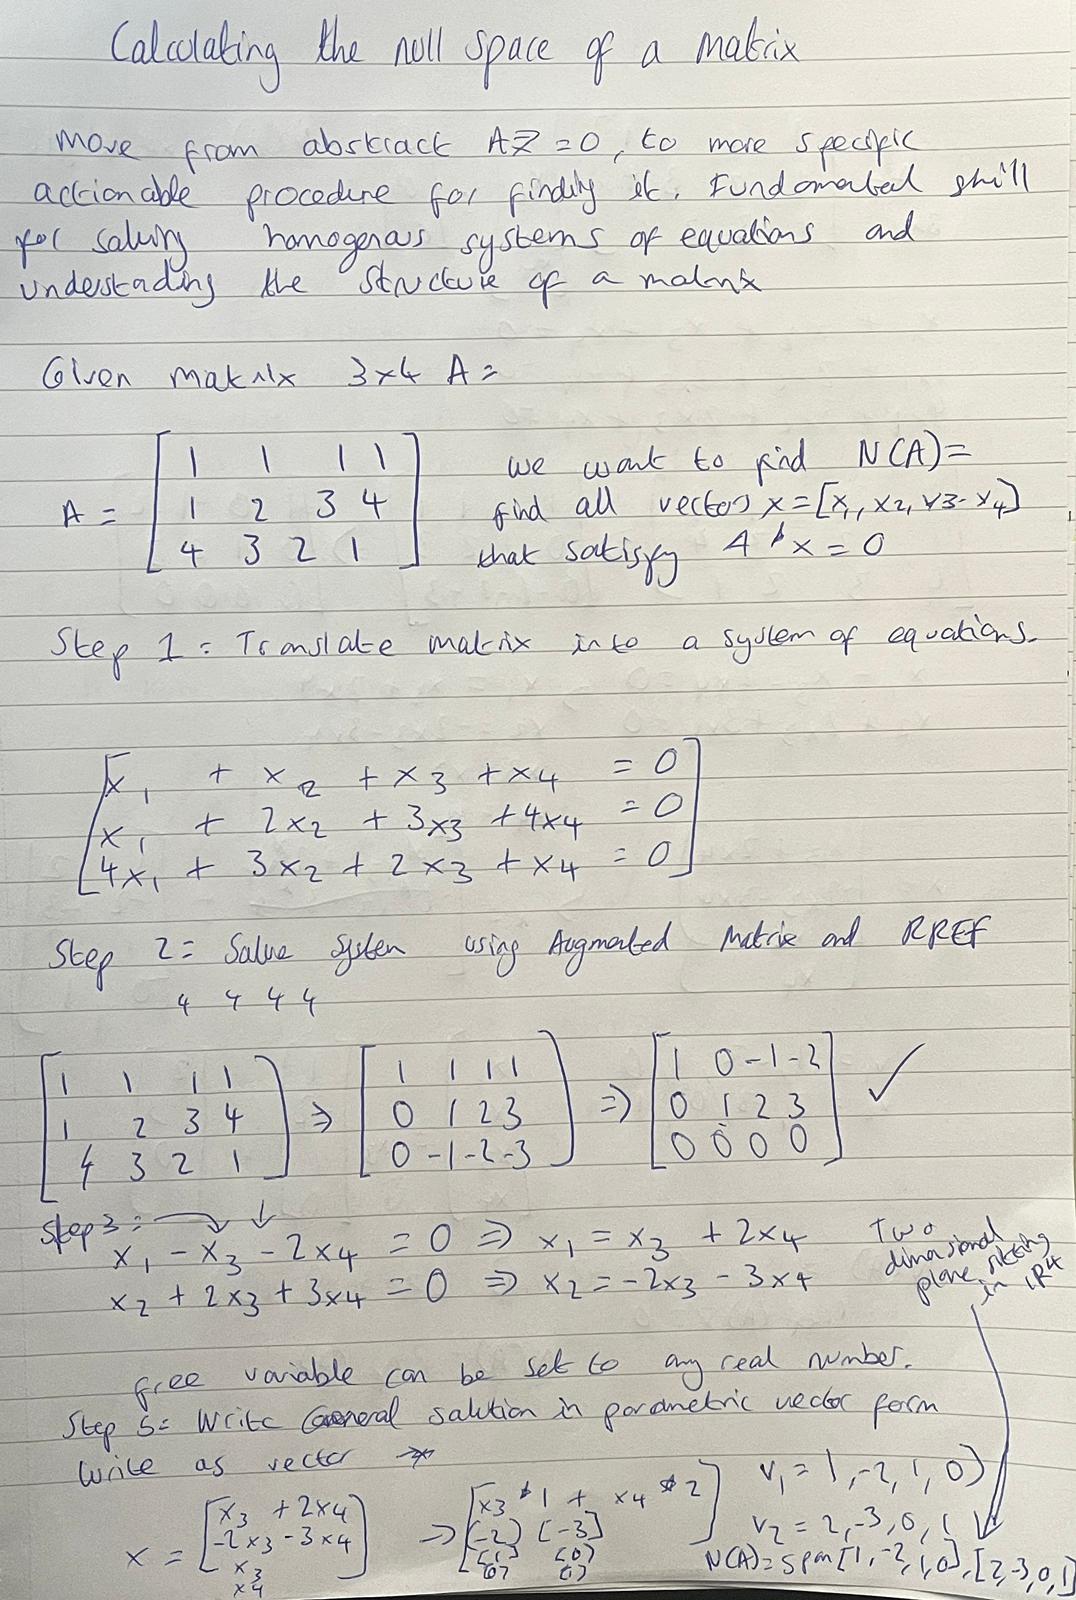 Calculating the null space of a matrix
Move from abstract AX=0, to more specific
actionable procedure for finding it. Fundamental skill
for solving homogenous systems of equations and
understanding the structure of a matrix
Given matrix 3x4 A=
A = [1 1 1 1
1 2 3 4
4 3 2 1]
we want to find N(A)=
find all vectors x=[x1, x2, x3-x4]
that satisfy A * x = 0
Step 1 = Translate matrix into a system of equations.
[x1 + x2 + x3 + x4 = 0
x1 + 2x2 + 3x3 + 4x4 = 0
4x1 + 3x2 + 2x3 + x4 = 0]
Step 2 = Solve System using Augmented Matrix and RREF
4 4 4 4
[1 1 1 1
1 2 3 4
4 3 2 1]
⇒ [1 1 1 1
0 1 2 3
0 -1 -2 -3]
⇒ [1 0 -1 -2
0 1 2 3
0 0 0 0] ✓
Step 3:
x1 - x3 - 2x4 = 0 ⇒ x1 = x3 + 2x4
x2 + 2x3 + 3x4 = 0 ⇒ x2 = -2x3 - 3x4
Two
dimensional
plane sitting
in IR4
free variable can be set to any real number.
Step 5= Write General solution in parametric vector form
Write as vector →
x = [x3 + 2x4
-2x3 - 3x4
x3
x4]
⇒ [x3 * 1 + x4 * 2
(-2) [-3]
(1) (0)
(0) (1)]
v1 = 1, -2, 1, 0)
v2 = 2, -3, 0, 1
N(A) = span[1, -2, 1, 0], [2, -3, 0, 1]